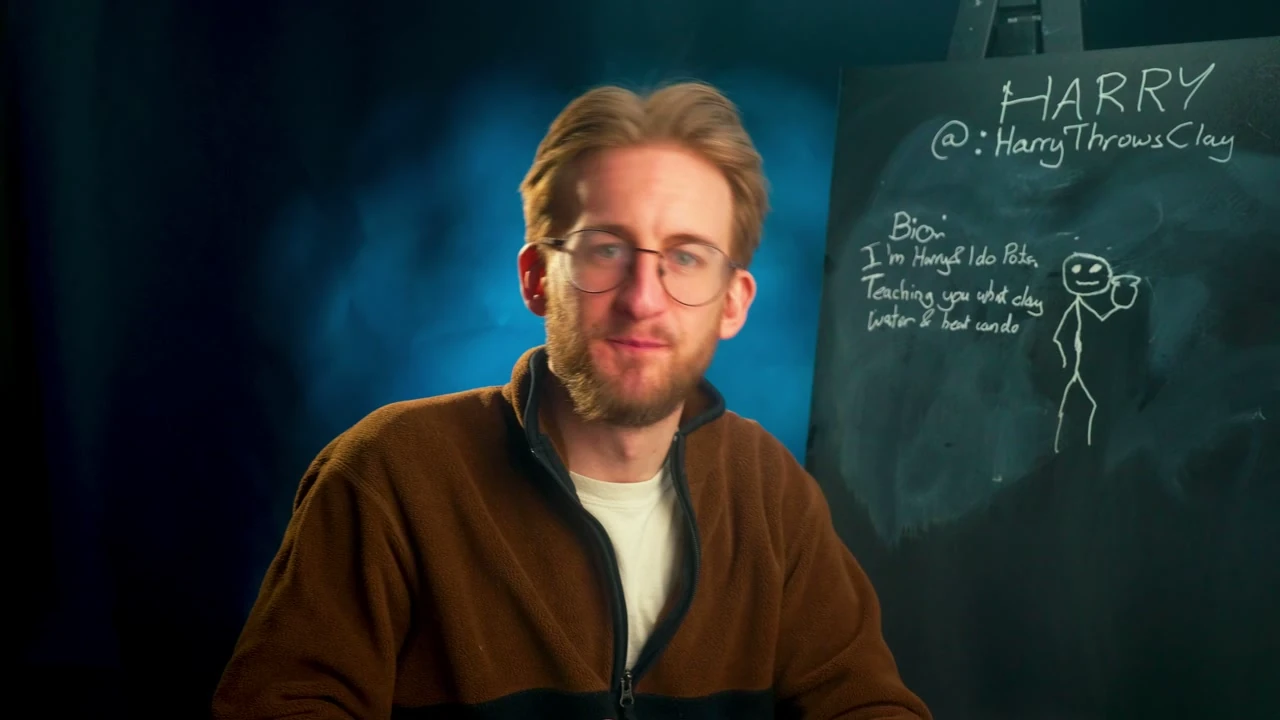 HARRY
@:HarryThrowsClay
Bio:
I'm Harry & I do Pots.
Teaching you what clay
water & heat can do